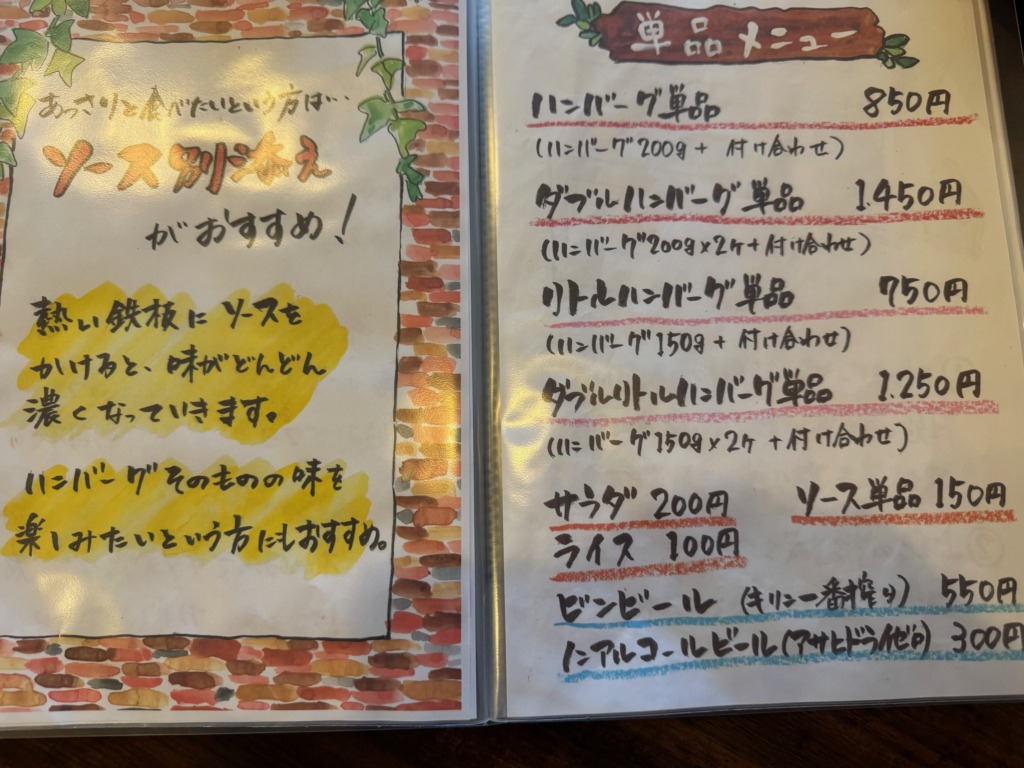 あっさりと食べたいという方は…
ソース別添え
がおすすめ!
熱い鉄板にソースを
かけると、味がどんどん
濃くなっていきます。
ハンバーグそのものの味を
楽しみたいという方にもおすすめ。
単品メニュー
ハンバーグ単品 850円
(ハンバーグ200g + 付け合わせ)
ダブルハンバーグ単品 1.450円
(ハンバーグ200g×2ケ+付け合わせ)
リトルハンバーグ単品 750円
(ハンバーグ150g + 付け合わせ)
ダブルリトルハンバーグ単品 1.250円
(ハンバーグ150g×2ケ +付け合わせ)
サラダ 200円 ソース単品 150円
ライス 100円
ビンビール (キリン一番搾り) 550円
ノンアルコールビール(アサヒドライゼロ) 300円